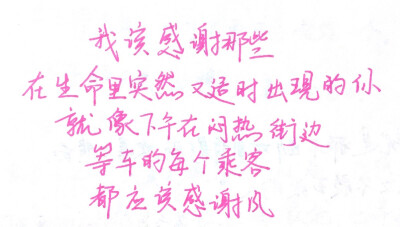 我该感谢那些
在生命里突然又适时出现的你
就像下午在闷热街边
等车的每个乘客
都应该感谢风